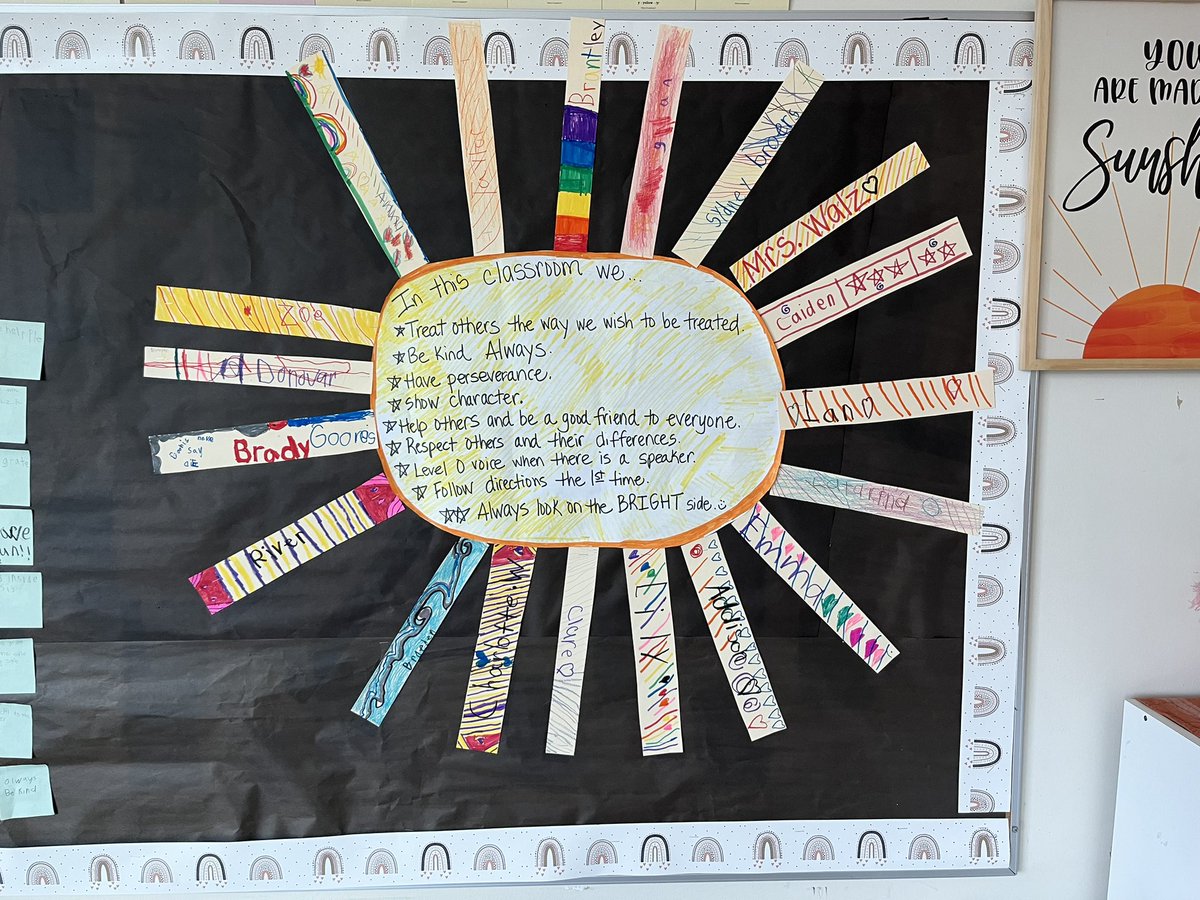 In this classroom we...
Treat others the way we wish to be treated.
Be Kind Always.
Have perseverance.
Show character.
Help others and be a good friend to everyone.
Respect others and their differences.
Level 0 voice when there is a speaker.
Follow directions the 1st time.
Always look on the BRIGHT side.
Brantley
Sidney
Mrs. Walz
Caiden
Emma
Addison
Clare
Charlotte.W
River
Brady
Donovan
Zoe
YOU
ARE MAD
Sunsh
always
Be kind